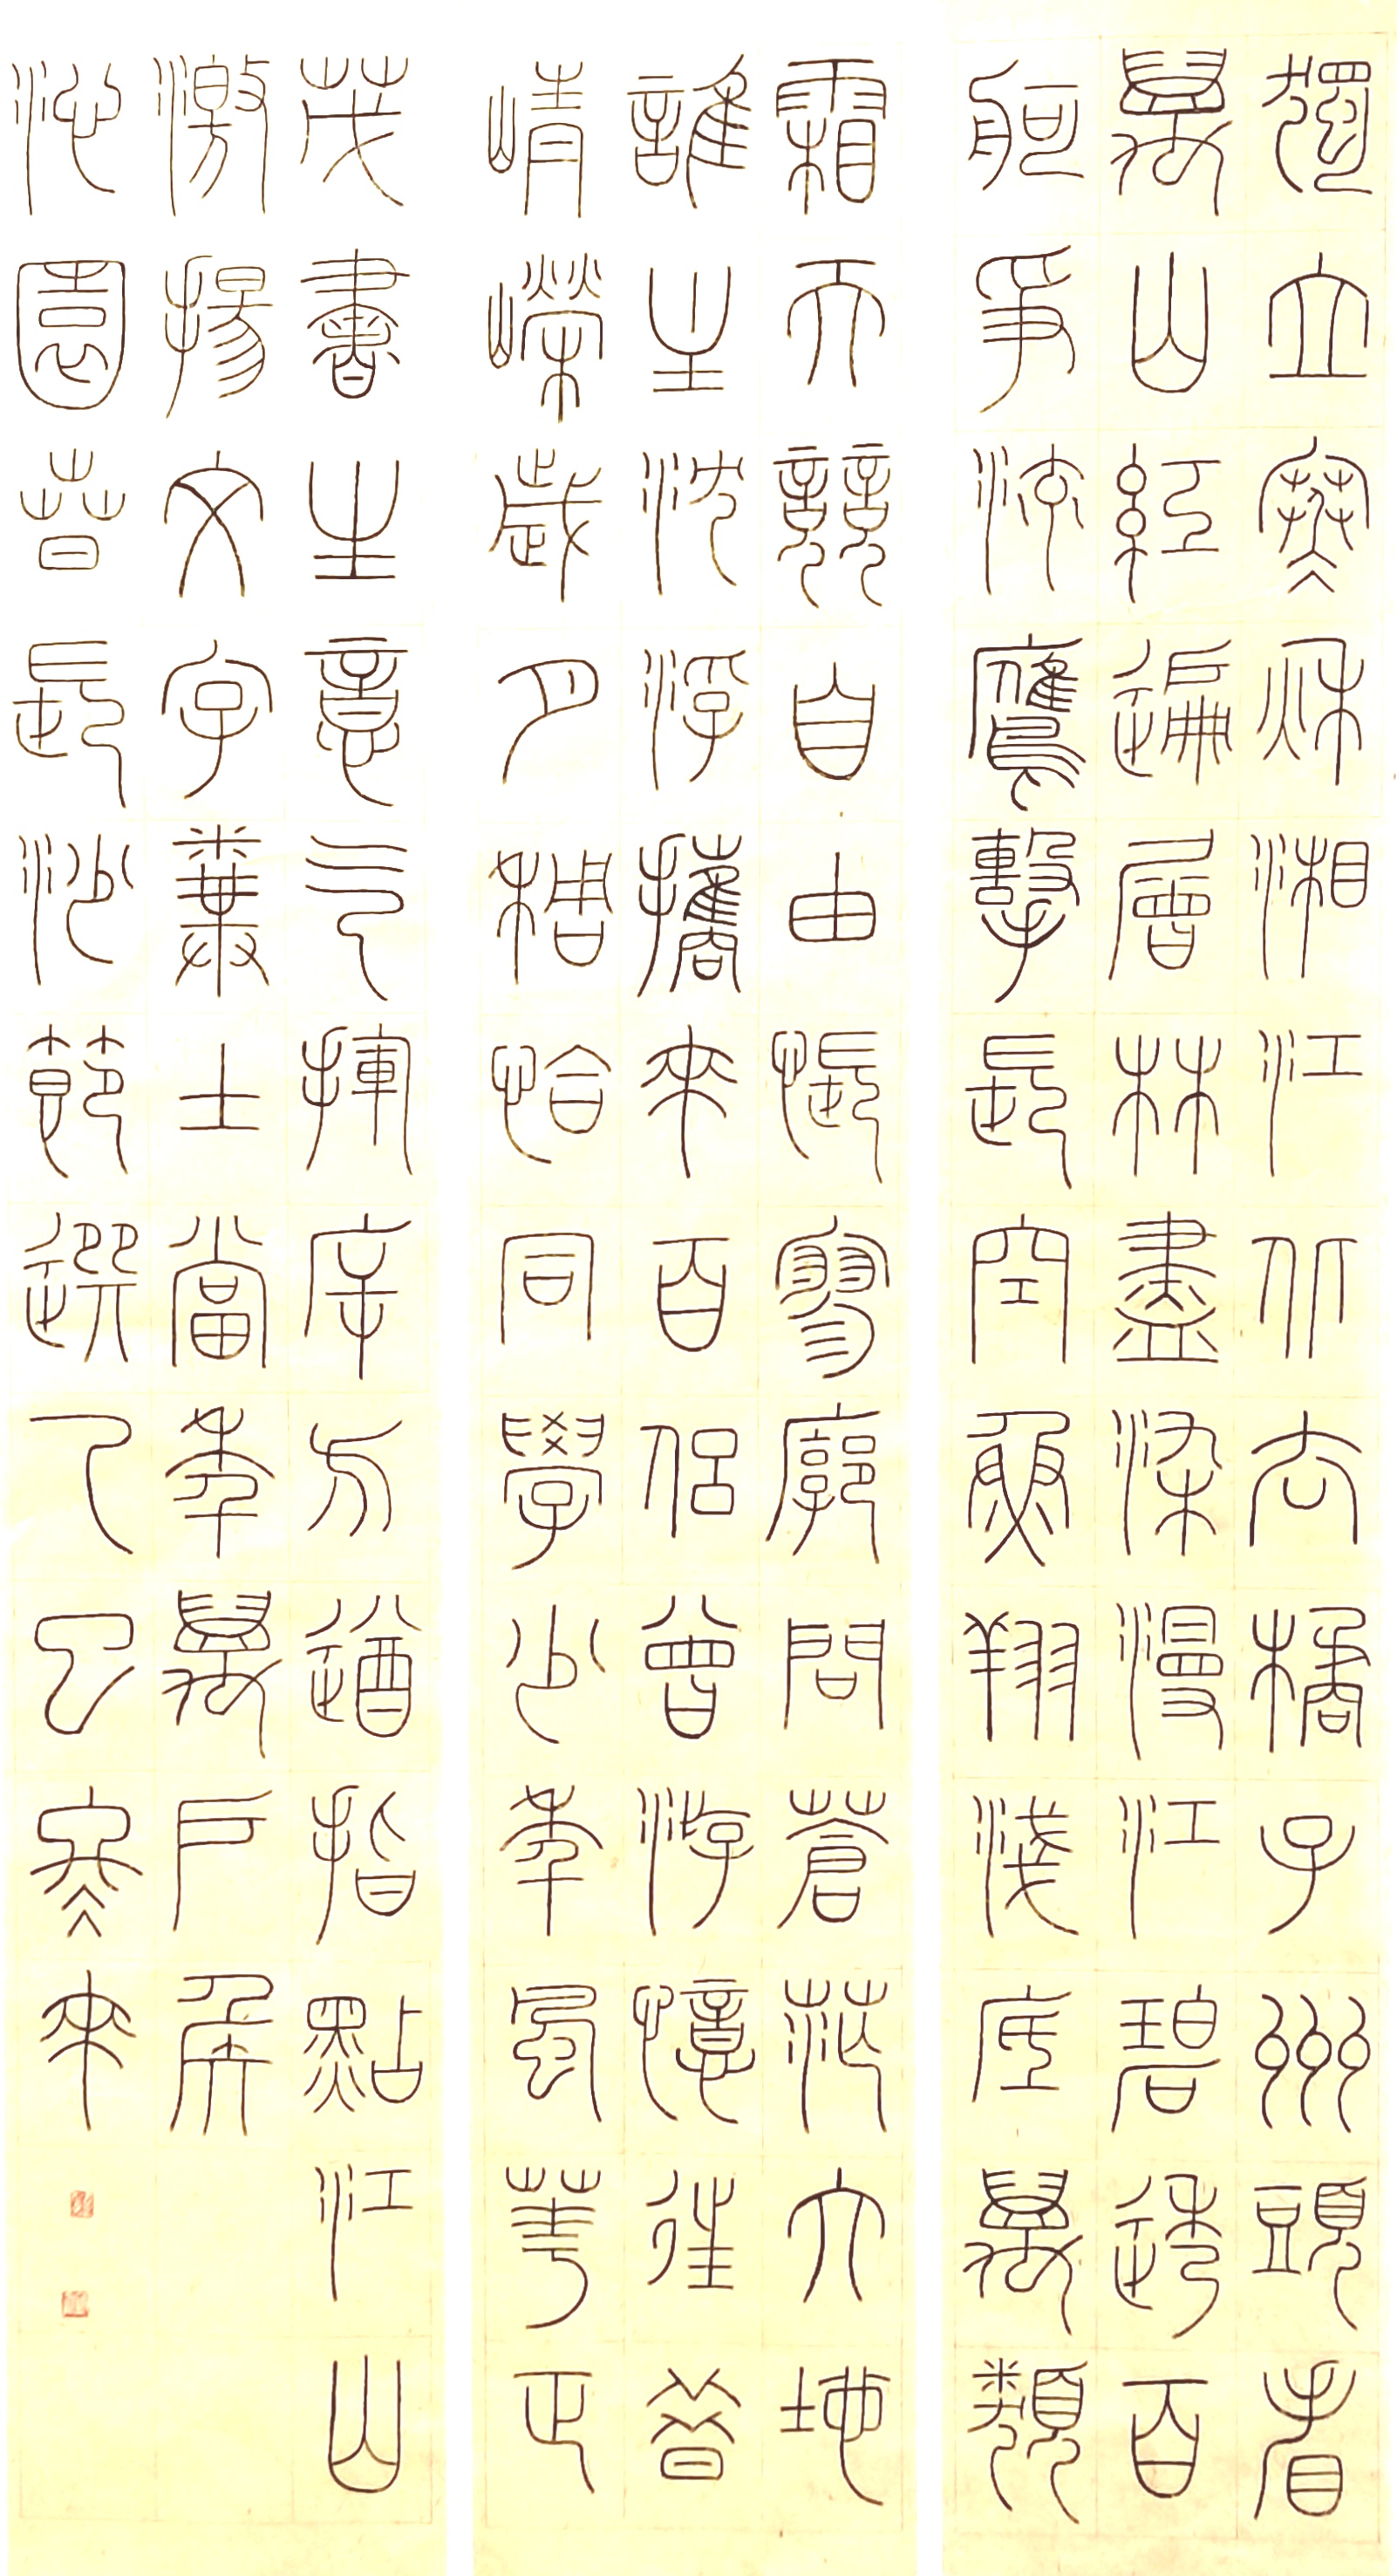 獨立寒秋湘江北去橘子州頭看
萬山紅遍層林盡染漫江碧透百
舸爭流鷹擊長空魚翔淺底萬類
霜天競自由悵寥廓問蒼茫大地
誰主沈浮攜來百侶曾游憶往昔
崢嶸歲月稠恰同學少年風華正
茂書生意气揮斥方遒指點江山
激揚文字糞土當年萬戶侯
沁園春長沙節選乙巳寒來